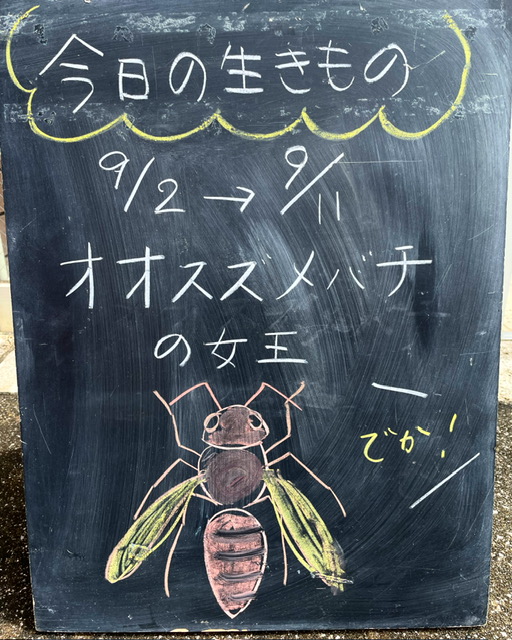 今日の生きもの
9/2→9/11
オオスズメバチ
の女王
でか!